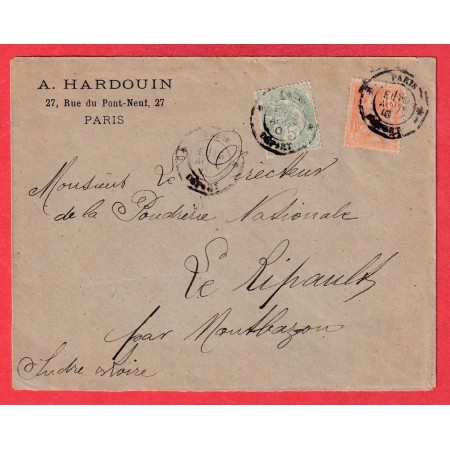 A. HARDOUIN
27, Rue du Pont-Neuf, 27
PARIS
PARIS
DÉPART
DÉPART
DÉPART
5
Monsieur Le Directeur
de la Poudrerie Nationale
Le Ripault
par Montbazon
Indre & Loire